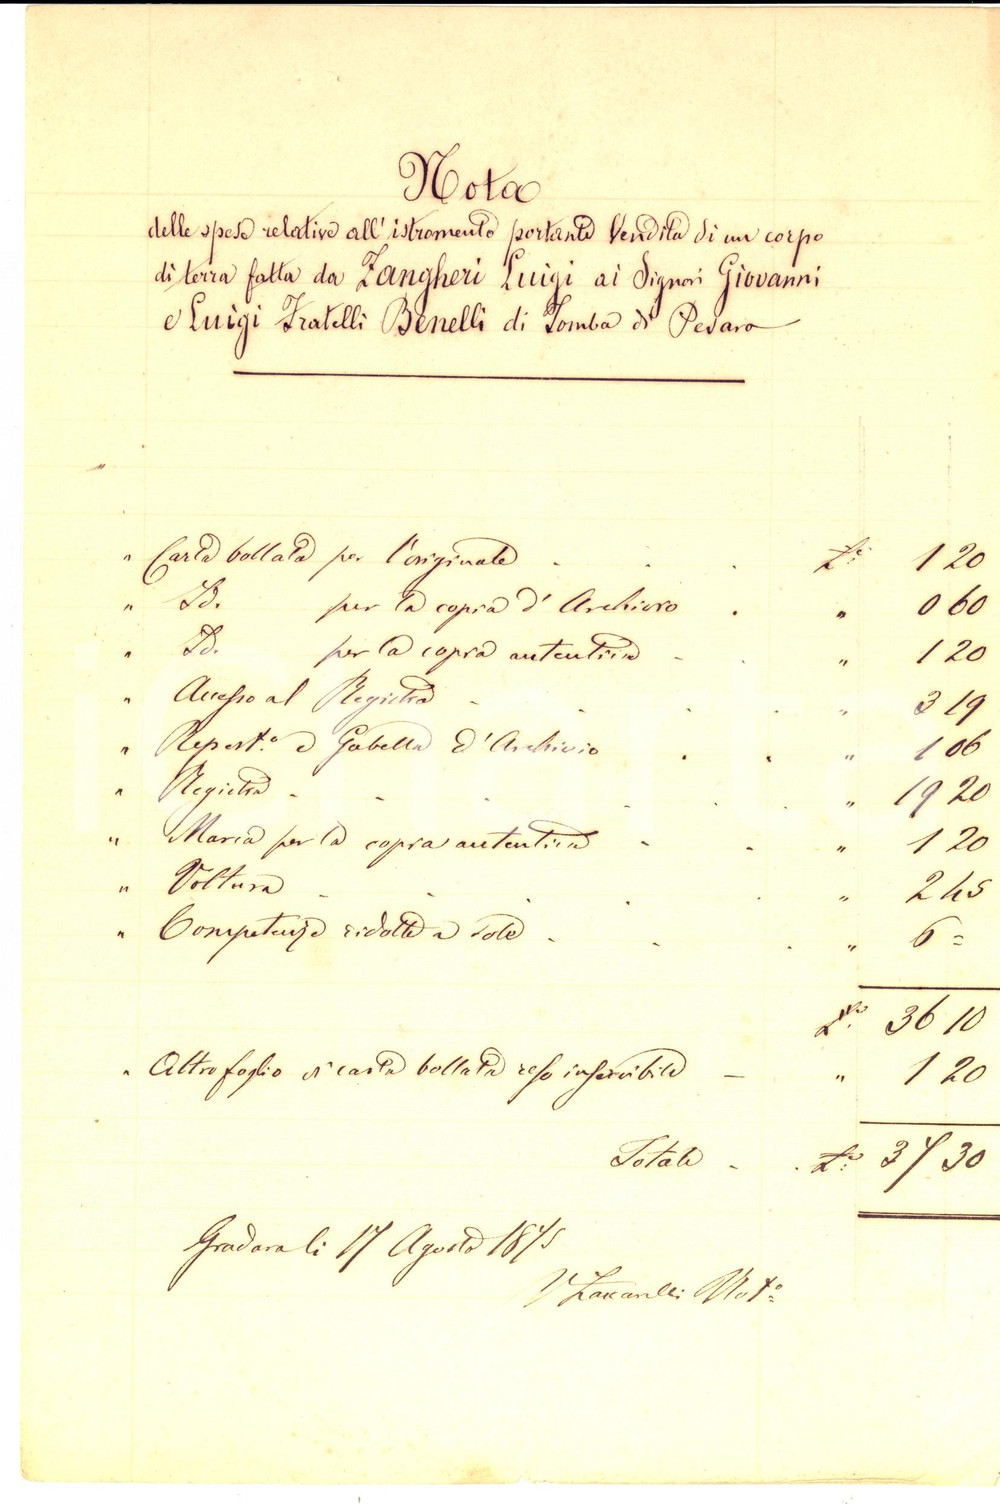 Nota
delle spese relative all'istromento portante Vendita di un corpo
di terra fatta da Zangheri Luigi ai Signori Giovanni
e Luigi Fratelli Benelli di Tomba di Pesaro
" Carta bollata per l'originale . . . Lᵉ: 1 20
" Id. per la copia d'Archivio . " 0 60
" Id. per la copia autentica . . " 1 20
" Accesso al Registro . . . . " 3 19
" Repert.º e Gabella d'Archivio . . " 1 06
" Registro . . . . . . " 19 20
" Marca per la copia autentica . . " 1 20
" Voltura . . . . . " 2 45
" Competenze ridotte a sole . . . " 6 =
L 36 10
" Altro foglio di carta bollata reso inservibile — " 1 20
Totale . . Lᵉ: 37 30
Gradara li 17 Agosto 1875
Zaccarelli Not.º